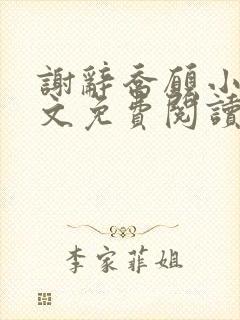 謝辭喬願小
文免費閱讀
李家菲姐